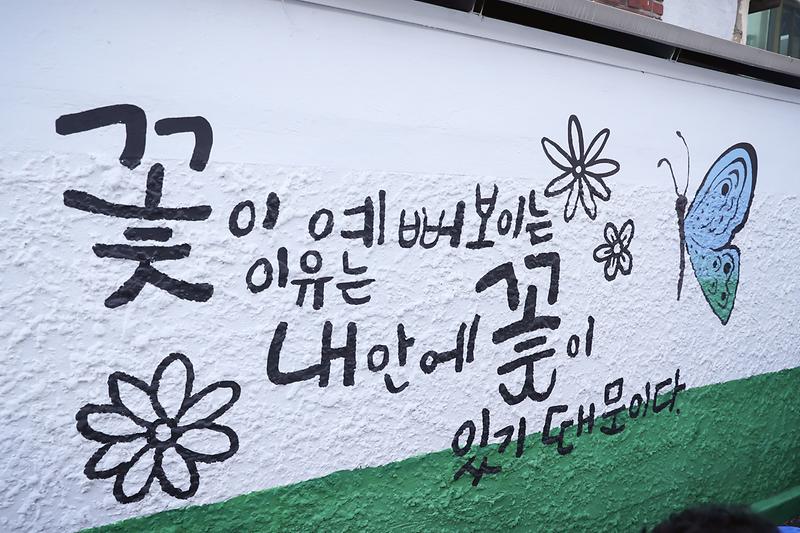 꽃이 예뻐보이는
이유는
내안에 꽃이
있기 때문이다.